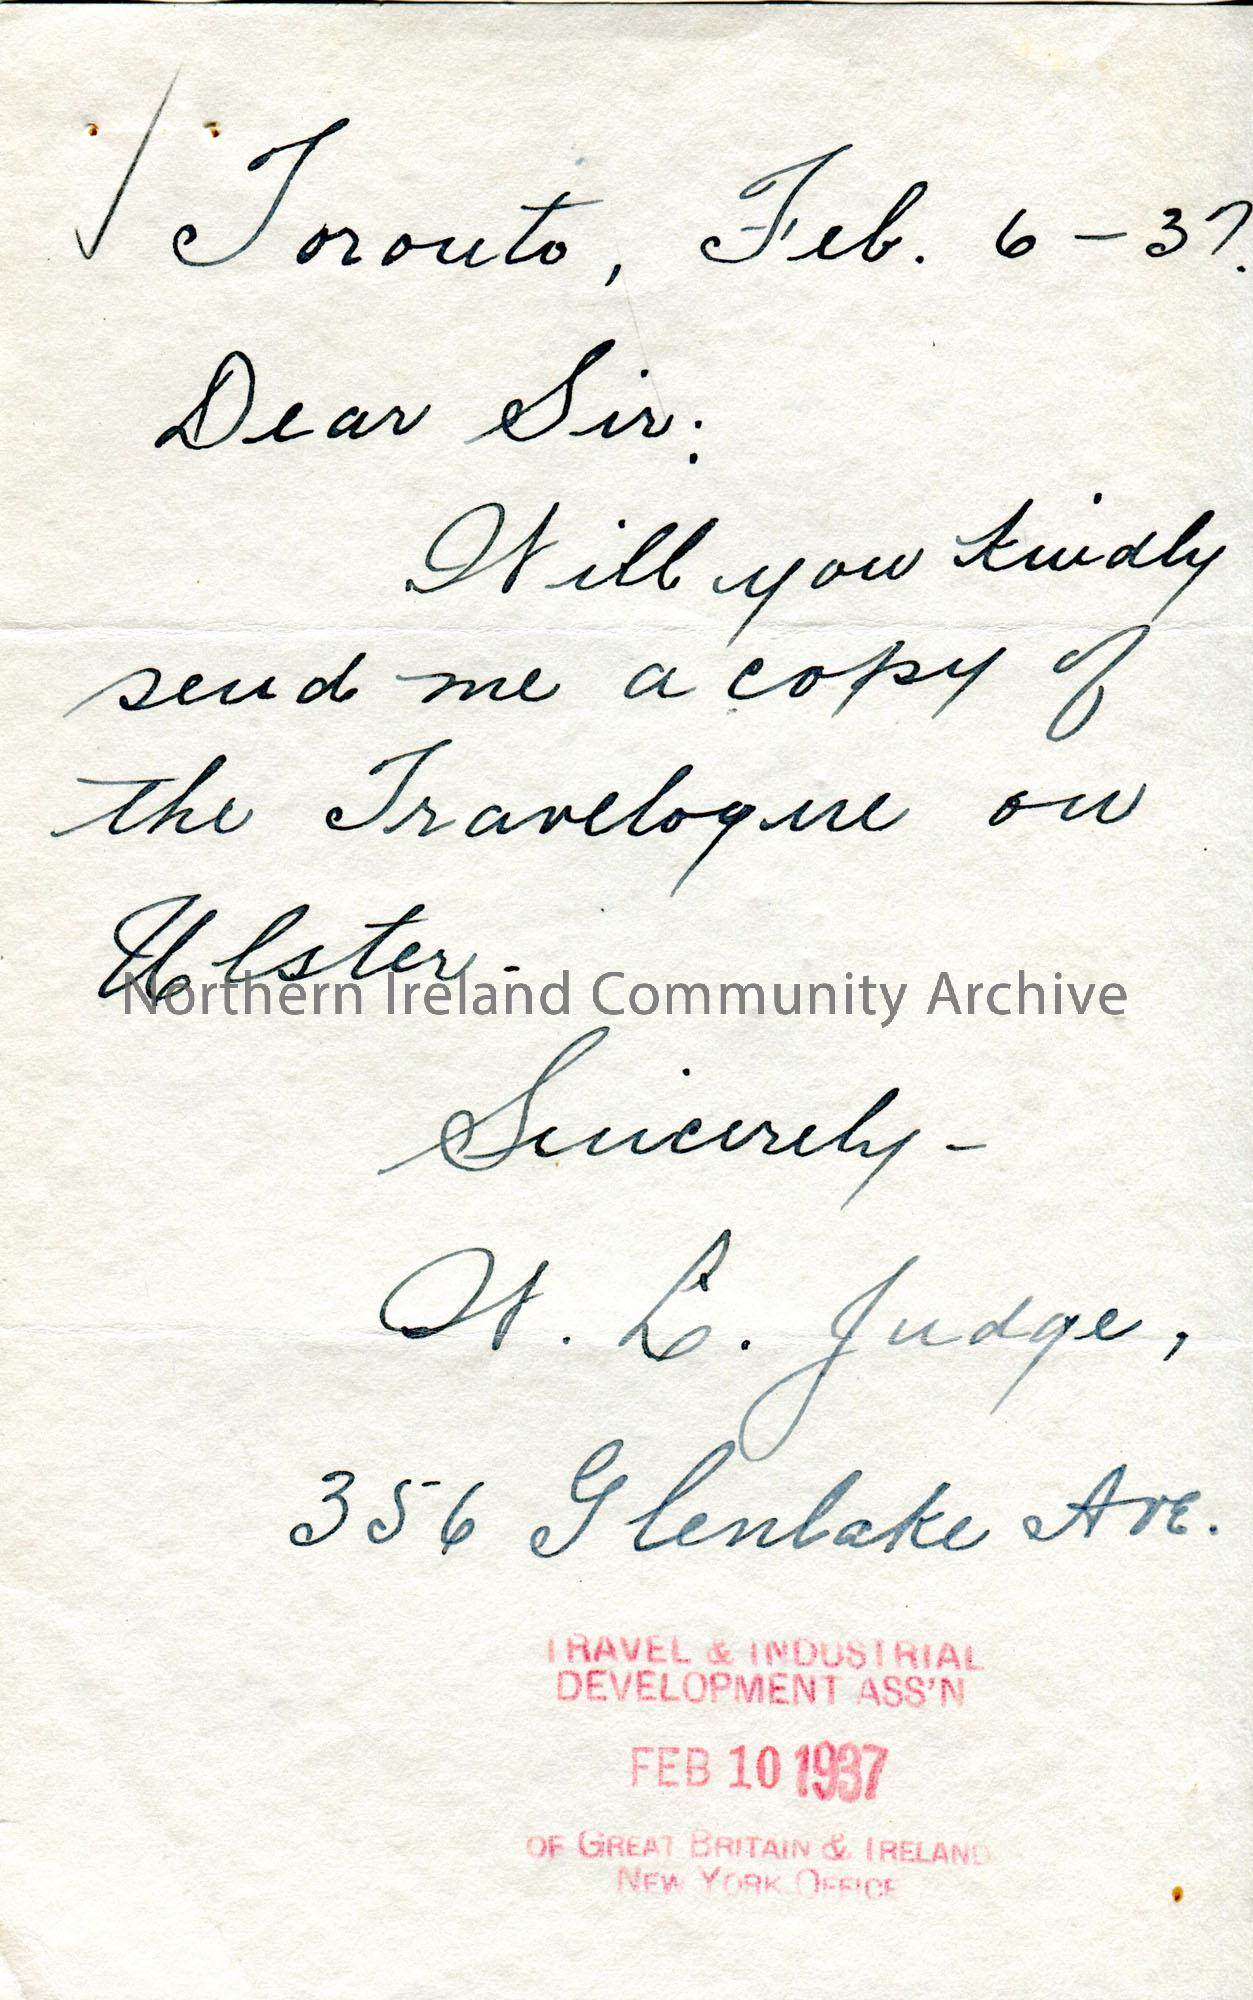 Toronto, Feb. 6-37.
Dear Sir:
Will you kindly
send me a copy of
the Travelogue on
Ulster-
Northern Ireland Community Archive
Sincerely-
W. L. Judge,
356 Glenlake Ave.
TRAVEL & INDUSTRIAL
DEVELOPMENT ASS'N
FEB 10 1937
OF GREAT BRITAIN & IRELAND
NEW YORK OFFICE